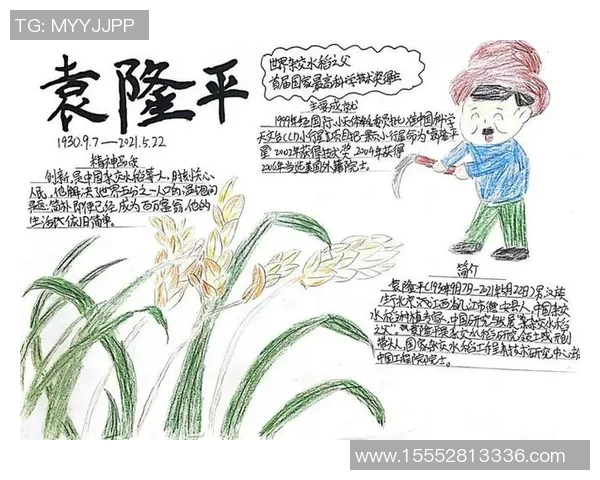 TG: MYYJJPP
袁隆平
1930.9.7—2021.5.22
世界杂交水稻之父
首届国家最高科学技术奖得主
主要成就
1999年经国际小天体命名委员会批准，中国科学
星"2002年获得技术奖，2004年获得
2006年当选美国外籍院士。
精神
创新，是中国杂交水稻第一人，时刻关心
人民，他解决了世界五分之一人口的温饱问
题；简朴，即使已经成为百万富翁，他的
生活依旧简单。
简介
袁隆平(1930年9月7日-2021年5月22日)，男，汉族
生于北京，江西省九江市德安县人，中国杂交
水稻育种专家，中国研究与发展"杂交水稻
之父"
带头人，国家杂交水稻工程技术研究中心
中国工程院院士。
www.15552813336.com